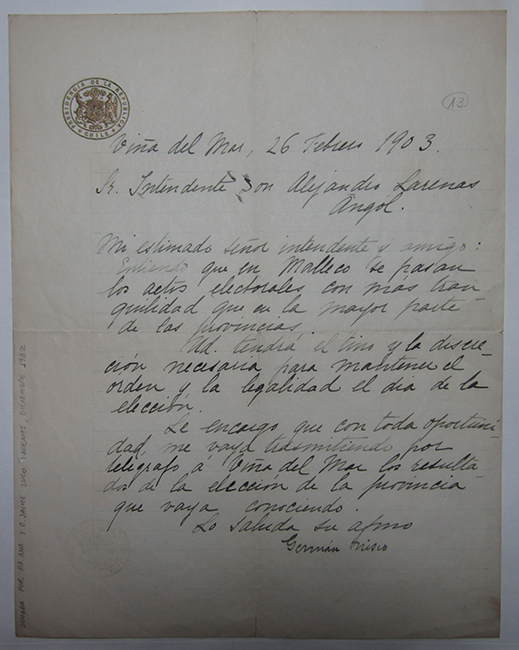 PRESIDENCIA DE LA REPUBLICA
CHILE
13
Viña del Mar, 26 Febrero 1903.
Sr. Intendente Don Alejandro Larenas
Angol.
Mi estimado señor intendente y amigo:
Entiendo que en Malleco se pasan
los actos electorales con más tran
quilidad que en la mayor parte
de las provincias.
Ud. tendrá el tino y la discre-
ción necesaria para mantener el
orden y la legalidad el dia de la
elección.
Le encargo que con toda oportuni
dad, me vaya trasmitiendo por
telégrafo a Viña del Mar los resulta
dos de la elección de la provincia
que vaya conociendo.
Lo saluda su afmo
Germán Riesco
DONADA POR Y D. JAIME LUCO LARENAS, DICIEMBRE 1982